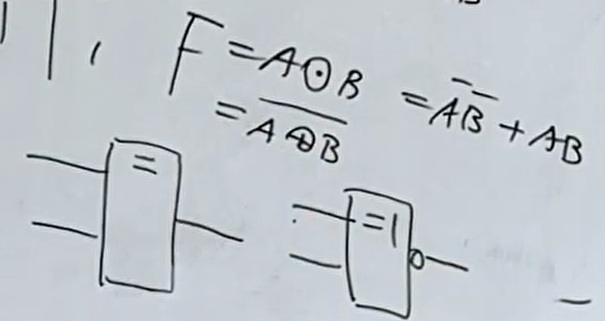 11, F = A⊙B = A̅B̅ + AB
= \overline{A⊕B}
=
=1